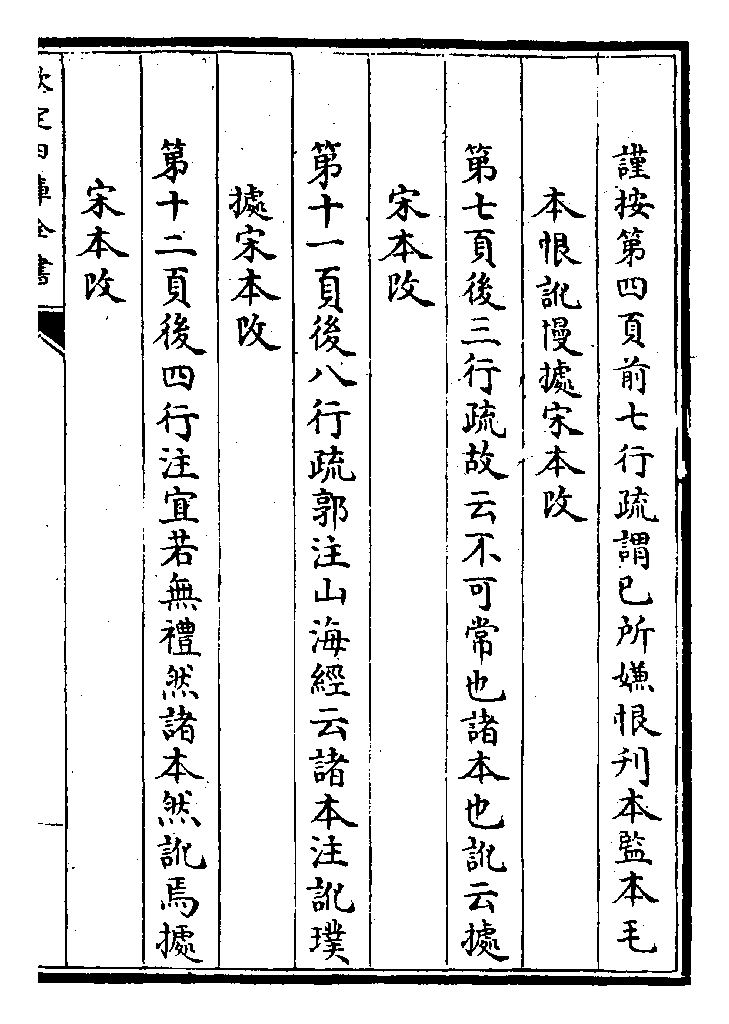 謹按第四頁前七行疏謂已所嫌恨刋本監本毛
本恨訛慢據宋本改
第七頁後三行疏故云不可常也諸本也訛云據
宋本改
第十一頁後八行疏郭注山海經云諸本注訛璞
據宋本改
第十二頁後四行注宜若無禮然諸本然訛焉據
宋本改
欽定四庫全書